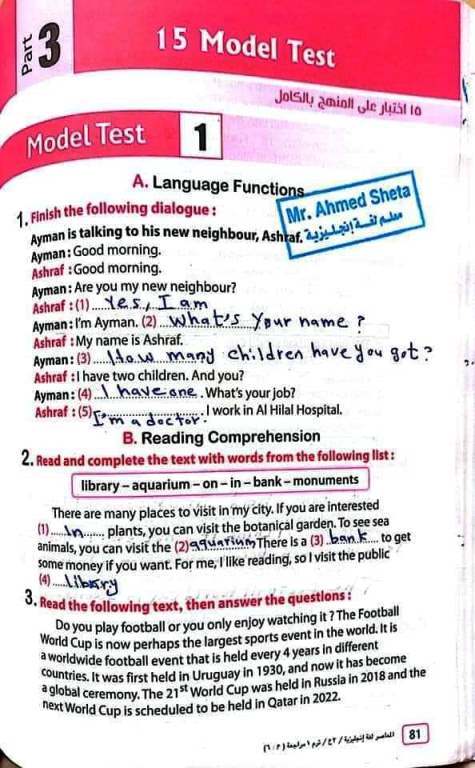 Part 3
15 Model Test
١٥ اختبار على المنهج بالكامل
Model Test 1
A. Language Functions
Mr. Ahmed Sheta
معلم لغة إنجليزية
1. Finish the following dialogue :
Ayman is talking to his new neighbour, Ashraf.
Ayman : Good morning.
Ashraf : Good morning.
Ayman : Are you my new neighbour?
Ashraf : (1) ..... Yes, I am
Ayman : I'm Ayman. (2) ... What's your name ?
Ashraf : My name is Ashraf.
Ayman : (3) ... How many children have you got ?
Ashraf : I have two children. And you?
Ayman : (4) ... I have one . What's your job?
Ashraf : (5) I'm a doctor . I work in Al Hilal Hospital.
B. Reading Comprehension
2. Read and complete the text with words from the following list :
library – aquarium – on – in – bank – monuments
There are many places to visit in my city. If you are interested
(1) ..... in ..... plants, you can visit the botanical garden. To see sea
animals, you can visit the (2) aquarium There is a (3) . bank ... to get
some money if you want. For me, I like reading, so I visit the public
(4) .... library
3. Read the following text, then answer the questions :
Do you play football or you only enjoy watching it ? The Football
World Cup is now perhaps the largest sports event in the world. It is
a worldwide football event that is held every 4 years in different
countries. It was first held in Uruguay in 1930, and now it has become
a global ceremony. The 21st World Cup was held in Russia in 2018 and the
next World Cup is scheduled to be held in Qatar in 2022.
81